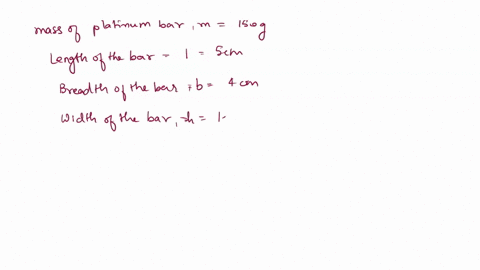 mass of platinum bar, m = 1500g
Length of the bar = l = 5cm
Breadth of the bar = b = 4 cm
Width of the bar, h = 1.